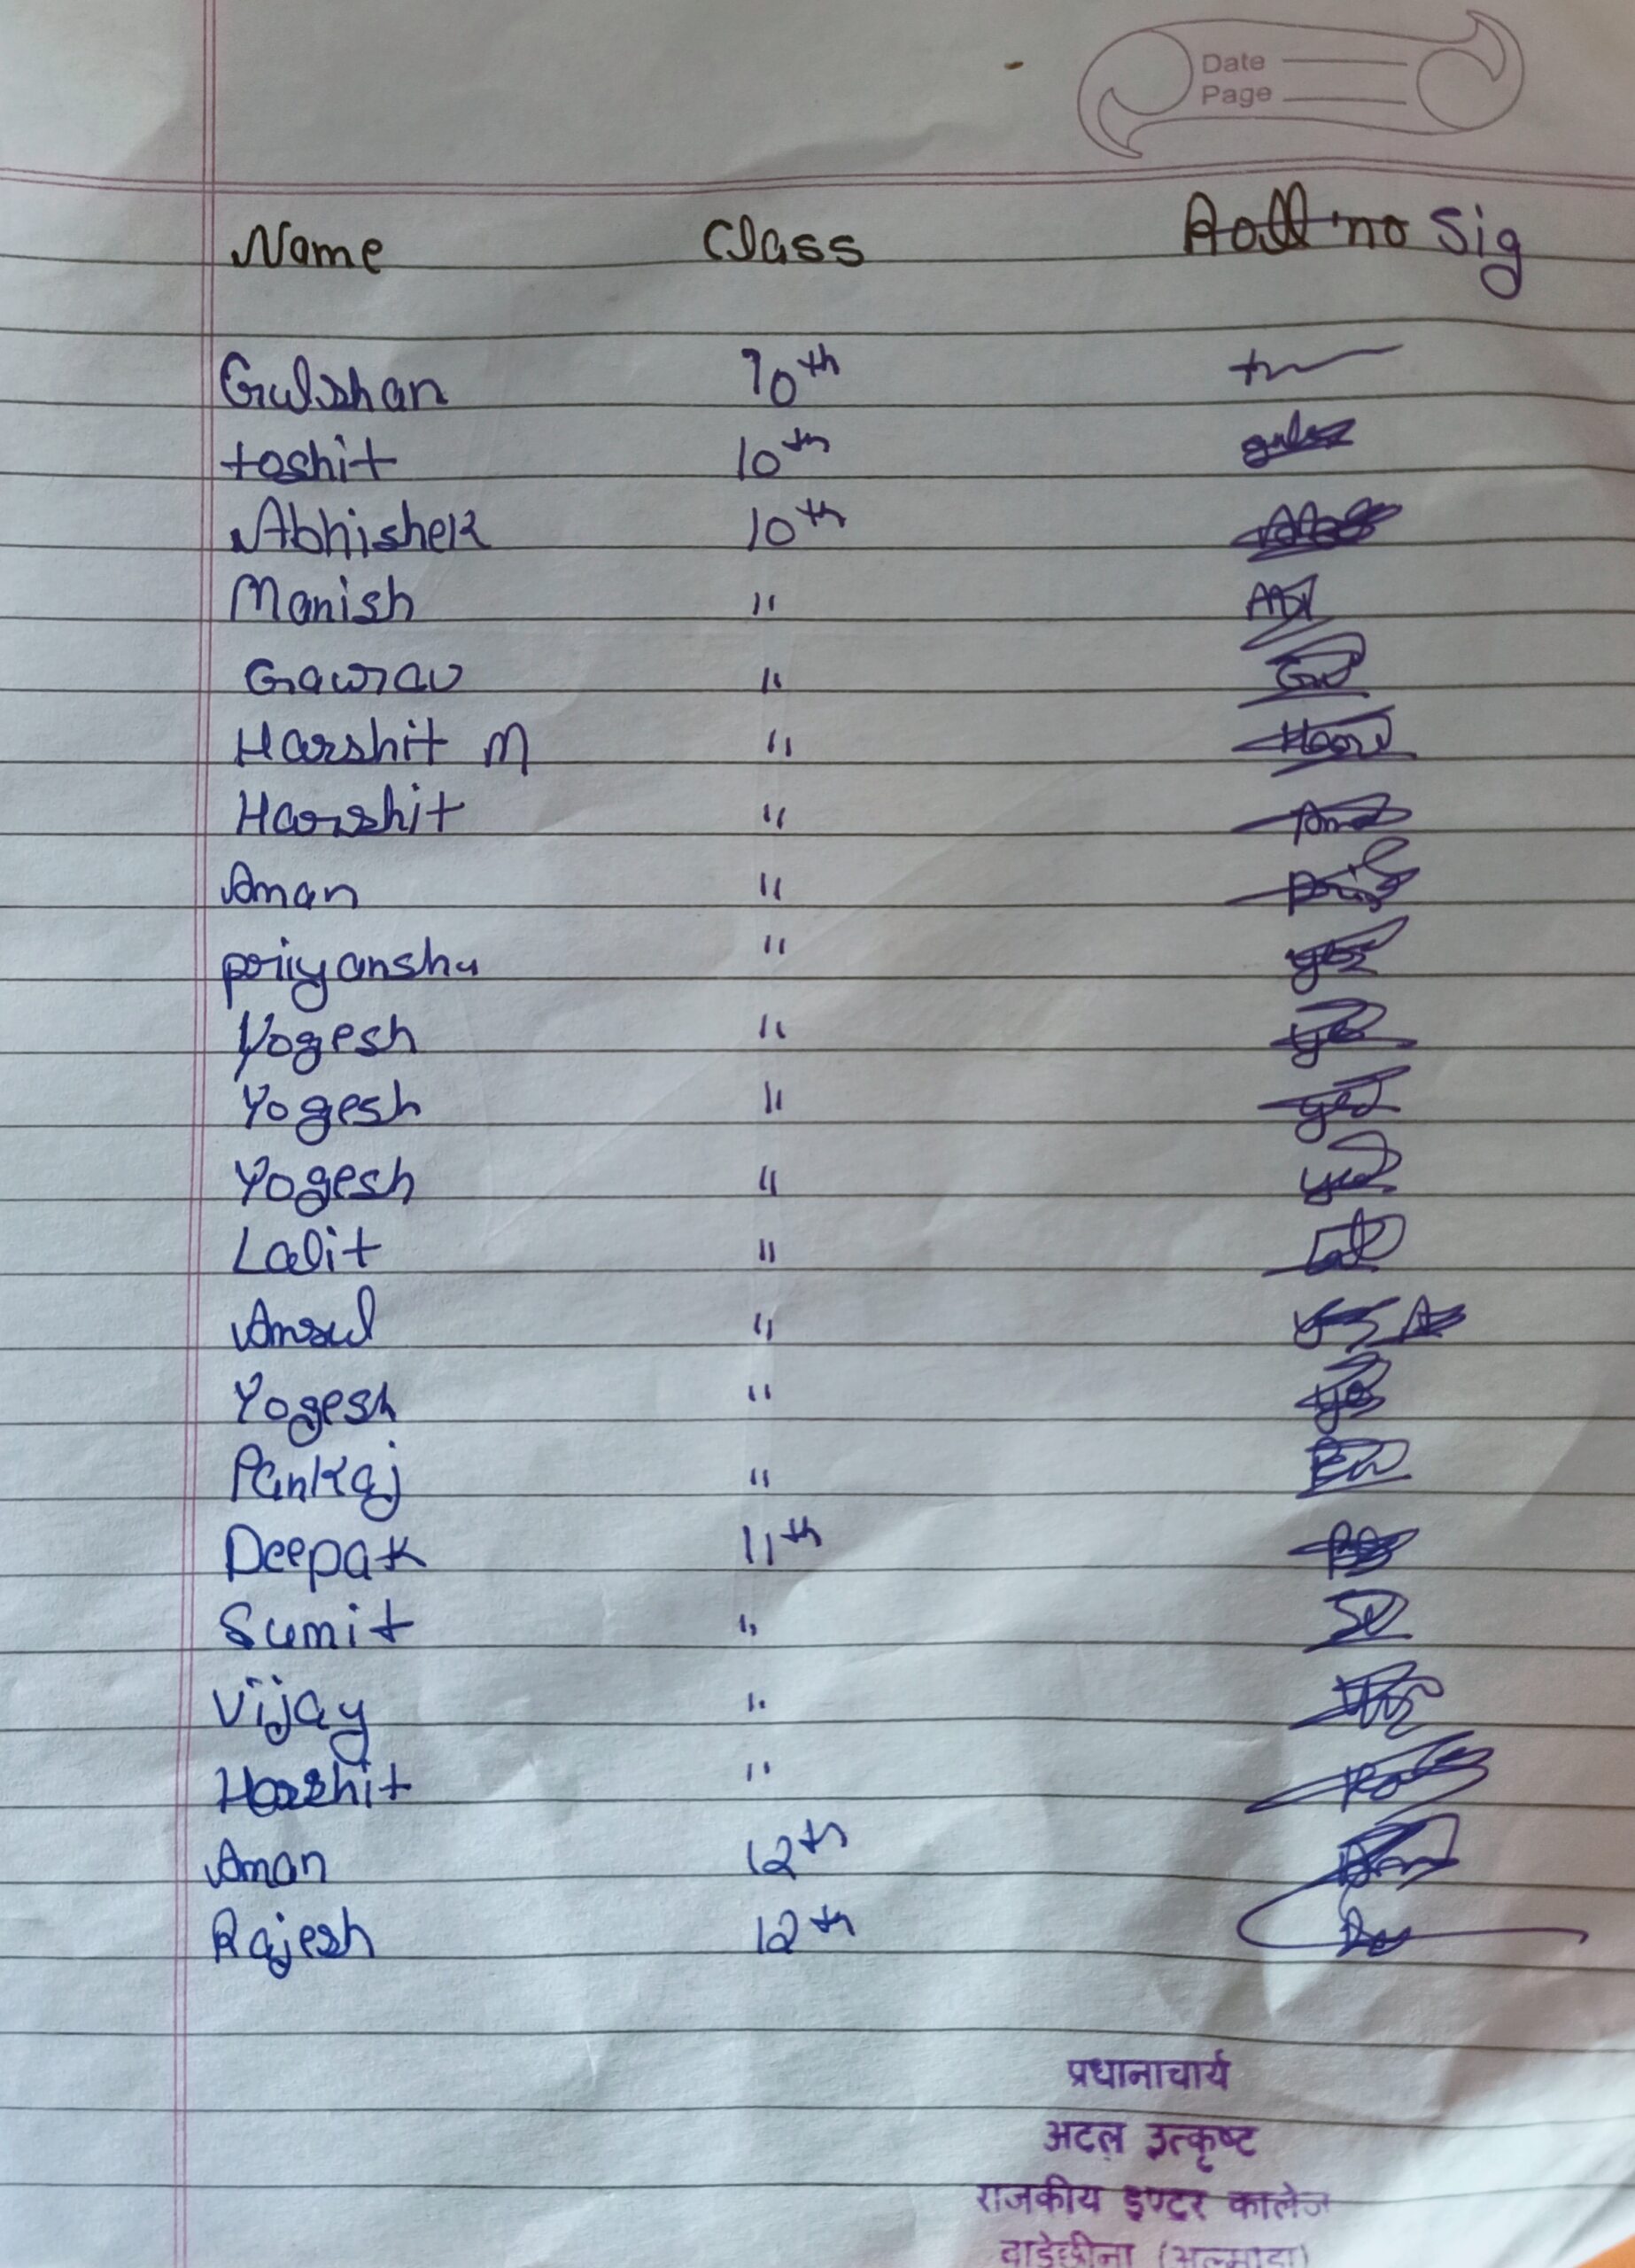 Date
Page
Name Class Roll no Sig
Gulshan 10th
toshit 10th
Abhishek 10th
Manish "
Gaurav "
Harshit M "
Harshit "
Aman "
priyanshu "
Yogesh "
Yogesh "
Yogesh "
Lalit "
Ansul "
Yogesh "
Pankaj "
Deepak 11th
Sumit "
Vijay "
Harshit "
Aman 12th
Rajesh 12th
प्रधानाचार्य
अटल उत्कृष्ट
राजकीय इण्टर कालेज
बाड़ेछीना (अल्मोड़ा)